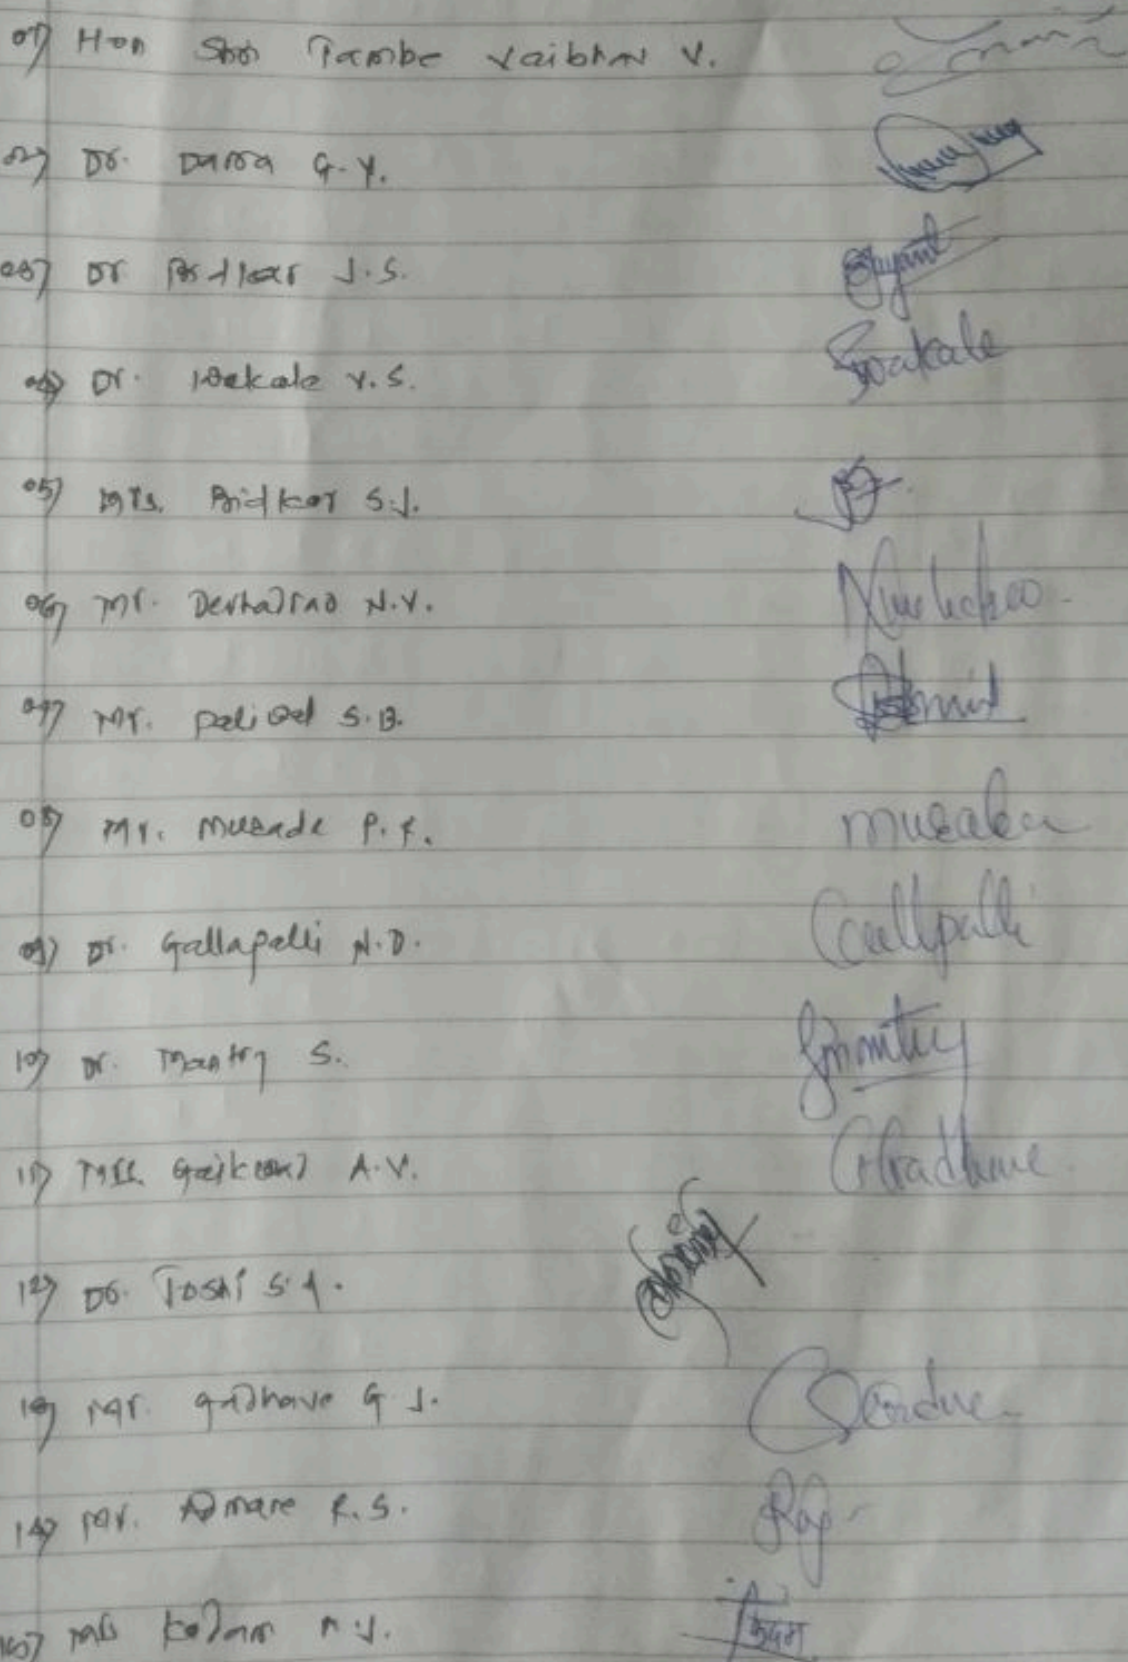 01) Hon Shri Tambe Vaibhav V.
02) Dr. Darra G.Y.
03) Dr Bidkar J.S. Jayant
04) Dr. Wakale V.S. Wakale
05) Mrs. Bidkar S.J.
06) Mr. Deshatrao N.V.
07) Mr. Paliwal S.B.
08) Mr. Musade P.R.
09) Dr. Gallapalli N.D. Gallpalli
10) Dr. Mantry S. Smantry
11) Mrs. Gaikwad A.V.
12) Dr. Joshi S.A.
13) Mr. Gadhave G J.
14) Mr. Admane R.S. Raj
15) Mrs Kadam M.J. कदम